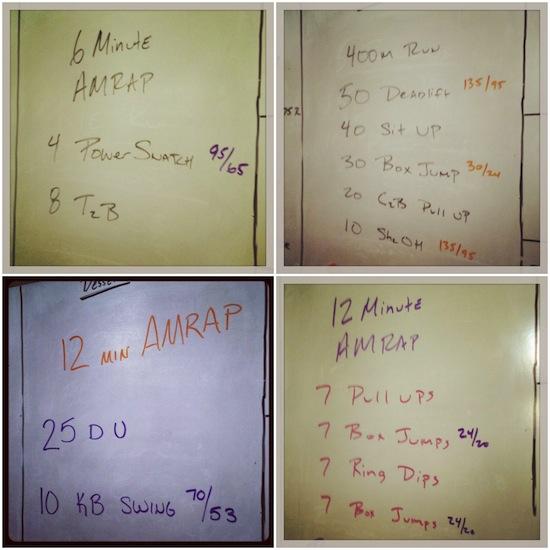 6 Minute
AMRAP
4 Power Snatch 95/65
8 T2B
400m Run
50 Deadlift 135/95
40 Sit UP
30 Box Jump 30/24
20 C2B Pull UP
10 Sh2OH 135/95
12 min AMRAP
25 DU
10 KB SWING 70/53
12 Minute
AMRAP
7 Pull ups
7 Box Jumps 24/20
7 Ring Dips
7 Box Jumps 24/20